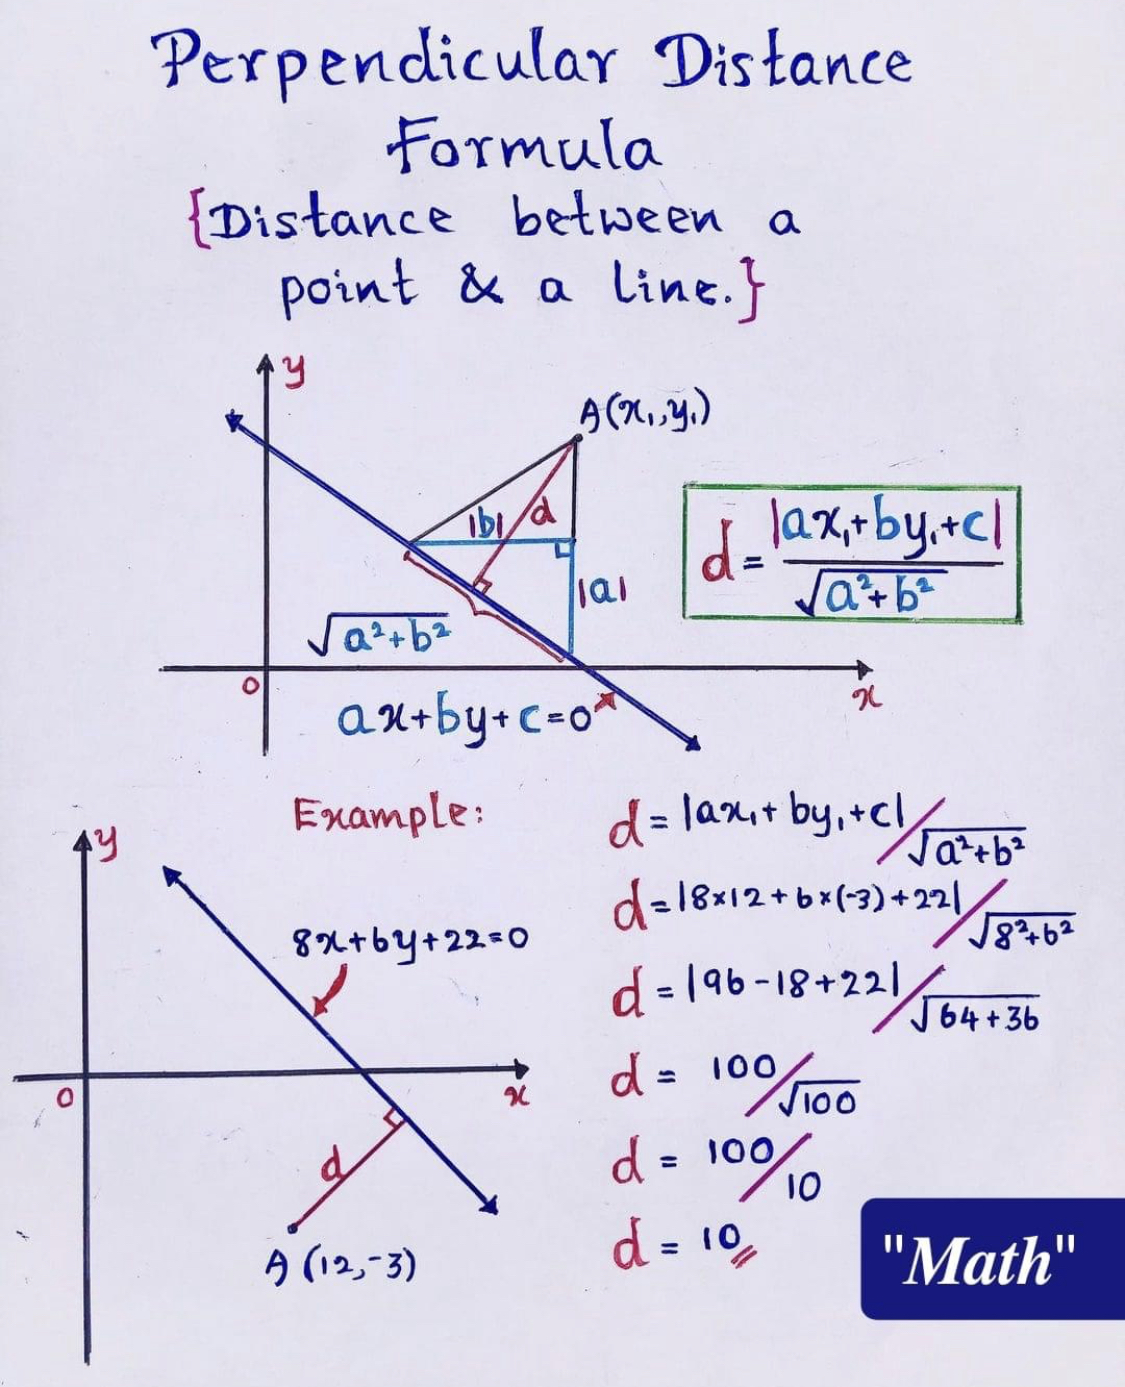 Perpendicular Distance
Formula
{Distance between a
point & a line.}
y
A(x₁,y₁)
|b|
d
|a|
√a²+b²
d = |ax₁+by₁+c|
√a²+b²
0
x
ax+by+c=0
Example:
y
8x+6y+22=0
0
x
d
A (12,-3)
d = |ax₁+by₁+c| / √a²+b²
d = |8×12+6×(-3)+22| / √8²+6²
d = |96-18+22| / √64+36
d = 100 / √100
d = 100 / 10
d = 10
"Math"